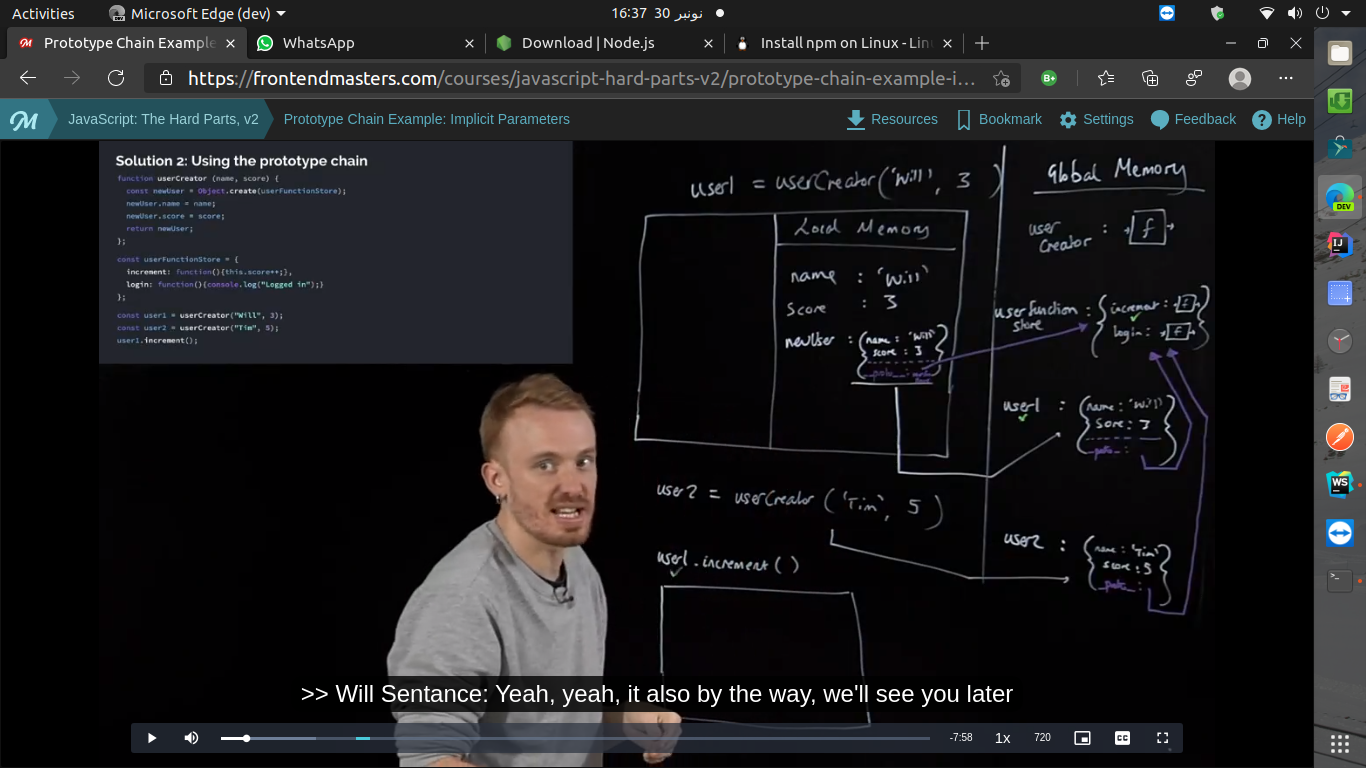 Activities
Microsoft Edge (dev)
16:37 30 نونبر
Prototype Chain Example
WhatsApp
Download | Node.js
Install npm on Linux - Lin
https://frontendmasters.com/courses/javascript-hard-parts-v2/prototype-chain-example-i…
B+
M
JavaScript: The Hard Parts, v2
Prototype Chain Example: Implicit Parameters
Resources
Bookmark
Settings
Feedback
Help
Solution 2: Using the prototype chain
function userCreator (name, score) {
const newUser = Object.create(userFunctionStore);
newUser.name = name;
newUser.score = score;
return newUser;
};
const userFunctionStore = {
increment: function(){this.score++;},
login: function(){console.log("Logged in");}
};
const user1 = userCreator("Will", 3);
const user2 = userCreator("Tim", 5);
user1.increment();
user1 = userCreator('Will', 3 )
Local Memory
name : 'Will'
score : 3
newUser : {name : 'Will'
score : 3
__proto__ :
user2 = userCreator ('Tim', 5 )
user1.increment ( )
Global Memory
user Creator : f
userfunction store : {increment : f
login : f }
user1 : {name : 'Will'
Score : 3
__proto__ : }
user2 : {name : 'Tim'
score : 5
__proto__ : }
>> Will Sentance: Yeah, yeah, it also by the way, we'll see you later
-7:58
1x
720
CC
DEV
IJ
WS
>_